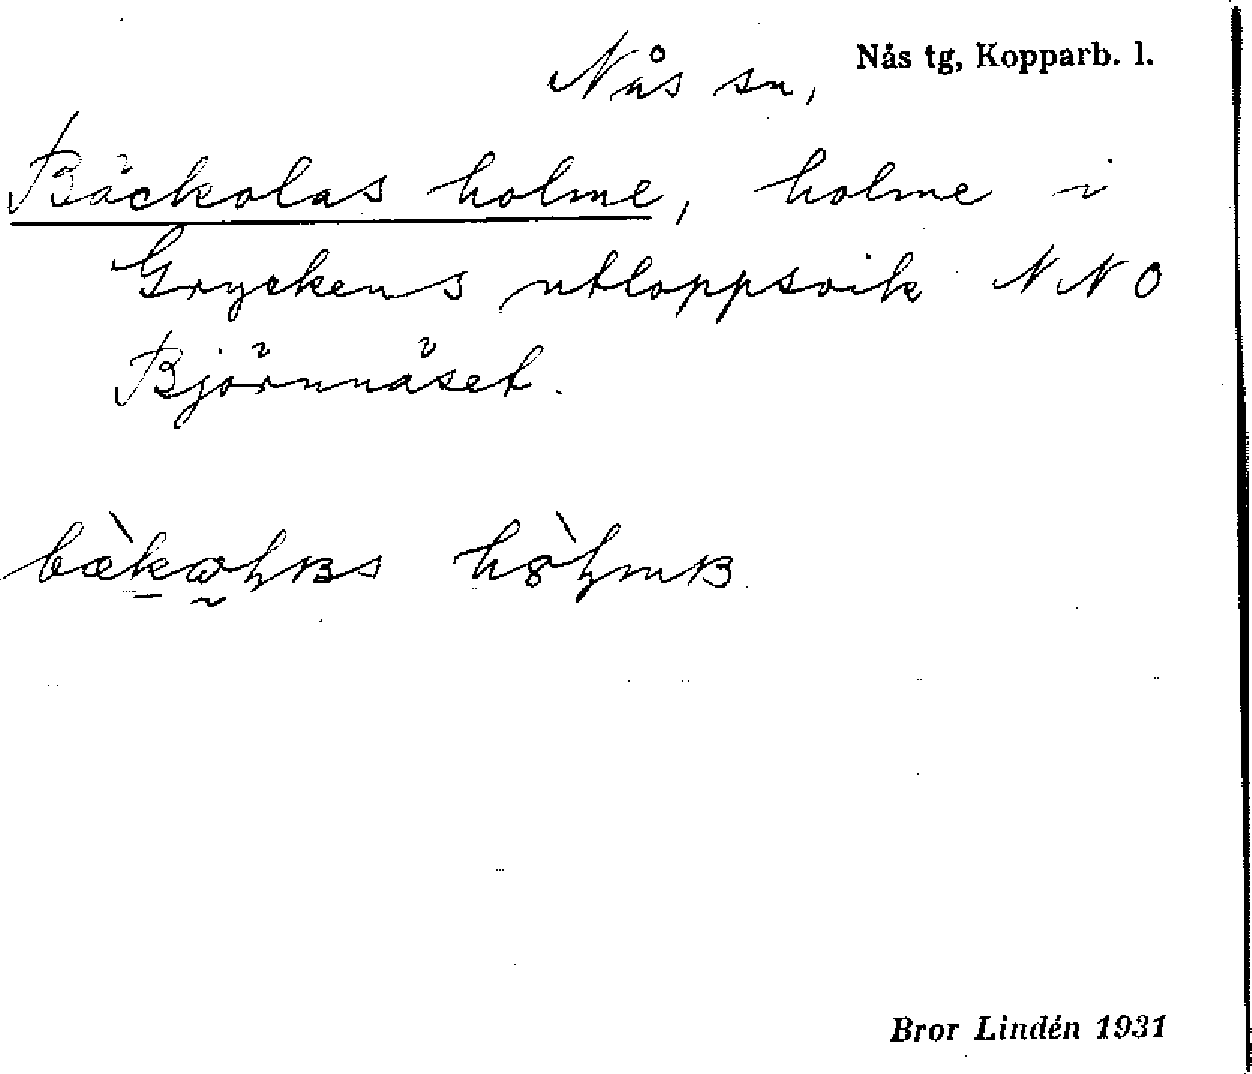 Nås sn, Nås tg, Kopparb. l.
Bäckolas holme, holme i
Gryckens utloppsvik NNO
Björnnäset.
Bror Lindén 1931